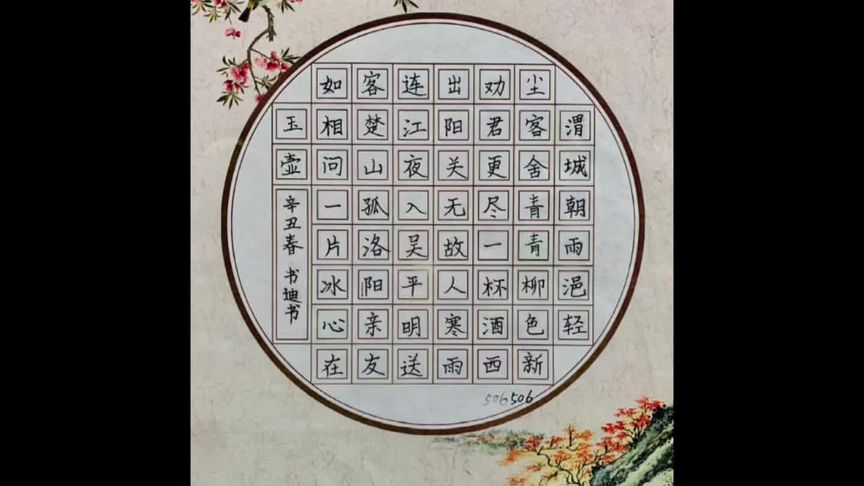 渭城朝雨浥轻
尘客舍青青柳色新
劝君更尽一杯酒西
出阳关无故人寒雨
连江夜入吴平明送
客楚山孤洛阳亲友
如相问一片冰心在
玉壶
辛丑春 书迪书
506 506